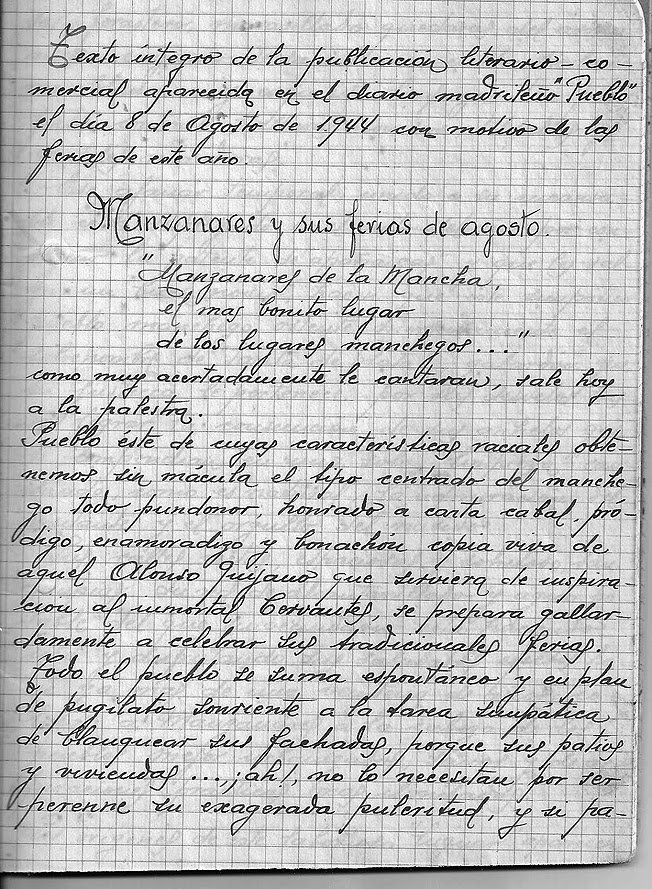 Texto íntegro de la publicación literario-co-
mercial aparecida en el diario madrileño "Pueblo"
el día 8 de Agosto de 1944 con motivo de las
ferias de este año.
Manzanares y sus ferias de agosto.
"Manzanares de la Mancha,
el mas bonito lugar
de los lugares manchegos..."
como muy acertadamente le cantaran, sale hoy
a la palestra.
Pueblo éste de cuyas caracteristicas raciales obte-
nemos sin mácula el tipo centrado del manche-
go todo pundonor, honrado a carta cabal, pró-
digo, enamoradizo y bonachón copia viva de
aquel Alonso Quijano que serviera de inspira-
cion al inmortal Cervantes, se prepara gallar-
damente a celebrar sus tradicionales ferias.
Todo el pueblo se suma espontáneo y en plan
de pugilato sonriente a la tarea simpática
de blanquear sus fachadas, porque sus patios
y viviendas ...,¡ah!, no lo necesitan por ser
perenne su exagerada pulcritud, y si pa-